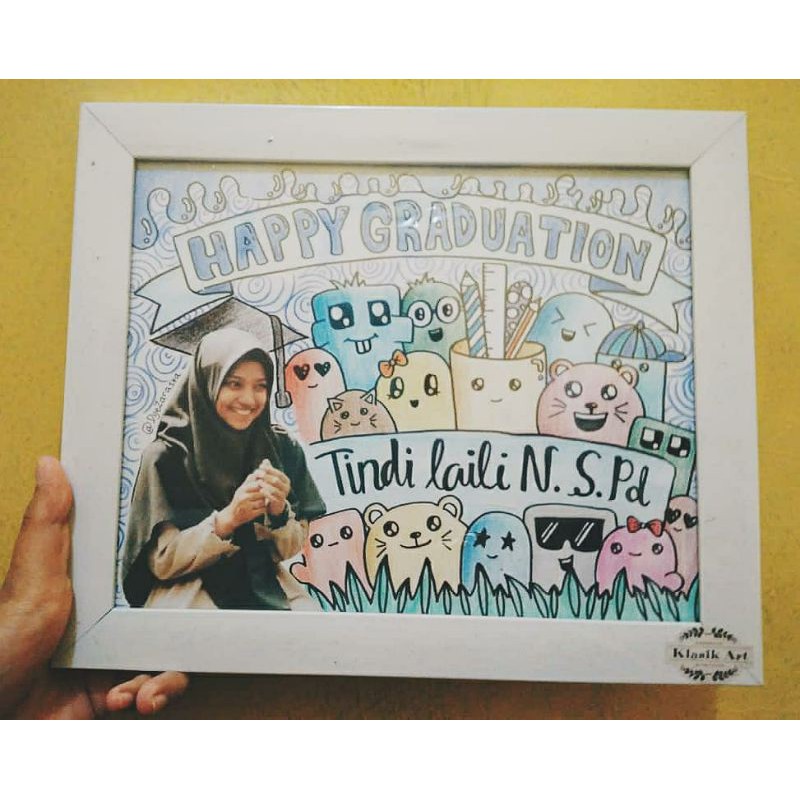 HAPPY GRADUATION
@Dyezaraska
Tindi laili N. S.Pd
Klasik Art